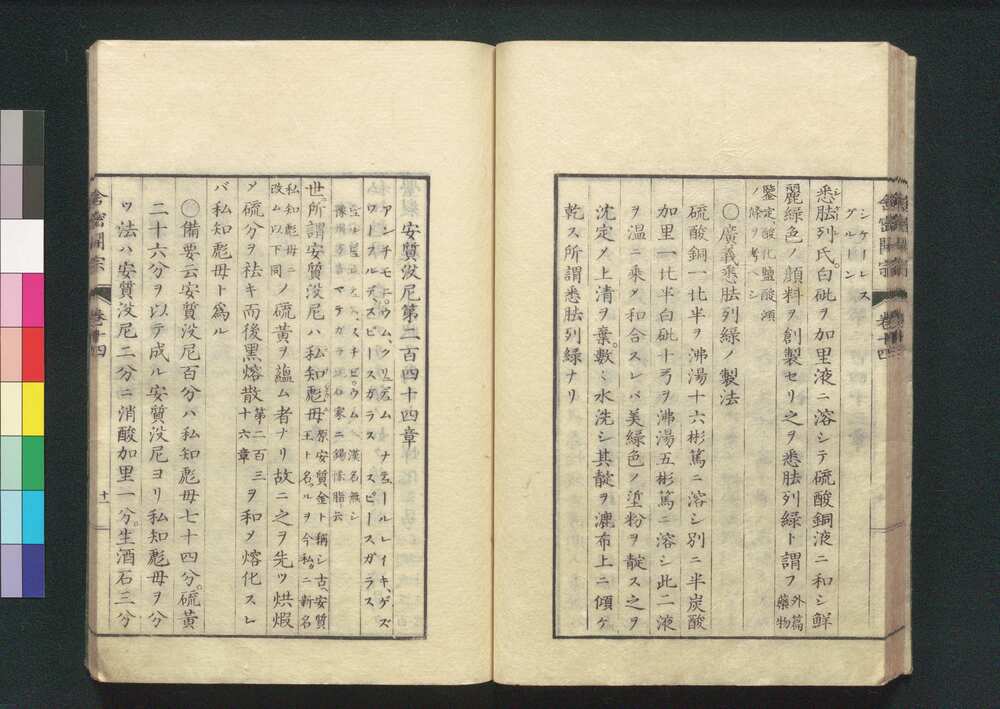 シケーレス
グルーン
悉㳒列氏白砒ヲ加里液ニ溶シテ硫酸銅液ニ和シ鮮
麗緑色ノ顔料ヲ創製セリ之ヲ悉㳒列緑ト謂フ外篇藥物
鑒定酸化鹽酸須
ノ條ヲ考ベシ
〇廣義悉㳒列緑ノ製法
硫酸銅一ヒ半ヲ沸湯十六彬篤ニ溶シ別ニ半炭酸
加里一ヒ半白砒十弓ヲ沸湯五彬篤ニ溶シ此二液
ヲ温ニ乘メ和合スレバ美緑色ノ塗粉ヲ靛ス之ヲ
沈定メ上清ヲ棄數〻水洗シ其靛ヲ漉布上ニ傾ケ
乾ス所謂悉㳒列緑ナリ
舎密開宗 巻十四
安質没尼第二百四十四章
アンチモニウム、クリュデュム、ナチュールレイキ、ゲズ
ワーフルデ、スピースガラス スピースガラス
世所謂安質没尼ハ私知彪母原安質金ト稱シ古、安質
王ト名ルヲ今私ニ新名
私知彪母ニ
改ム以下同ノ硫黄ヲ藴ム者ナリ故ニ之ヲ先ツ烘煆
メ硫分ヲ祛キ而後黒熔散第二百三十六章ヲ和メ熔化スレ
バ私知彪母ト為ル
〇備要云安質没尼百分ハ私知彪母七十四分硫黄
二十六分ヲ以テ成ル安質没尼ヨリ私知彪母ヲ分
ツ法ハ安質没尼二分ニ消酸加里一分生酒石三分
舎密開宗 巻十四 十一